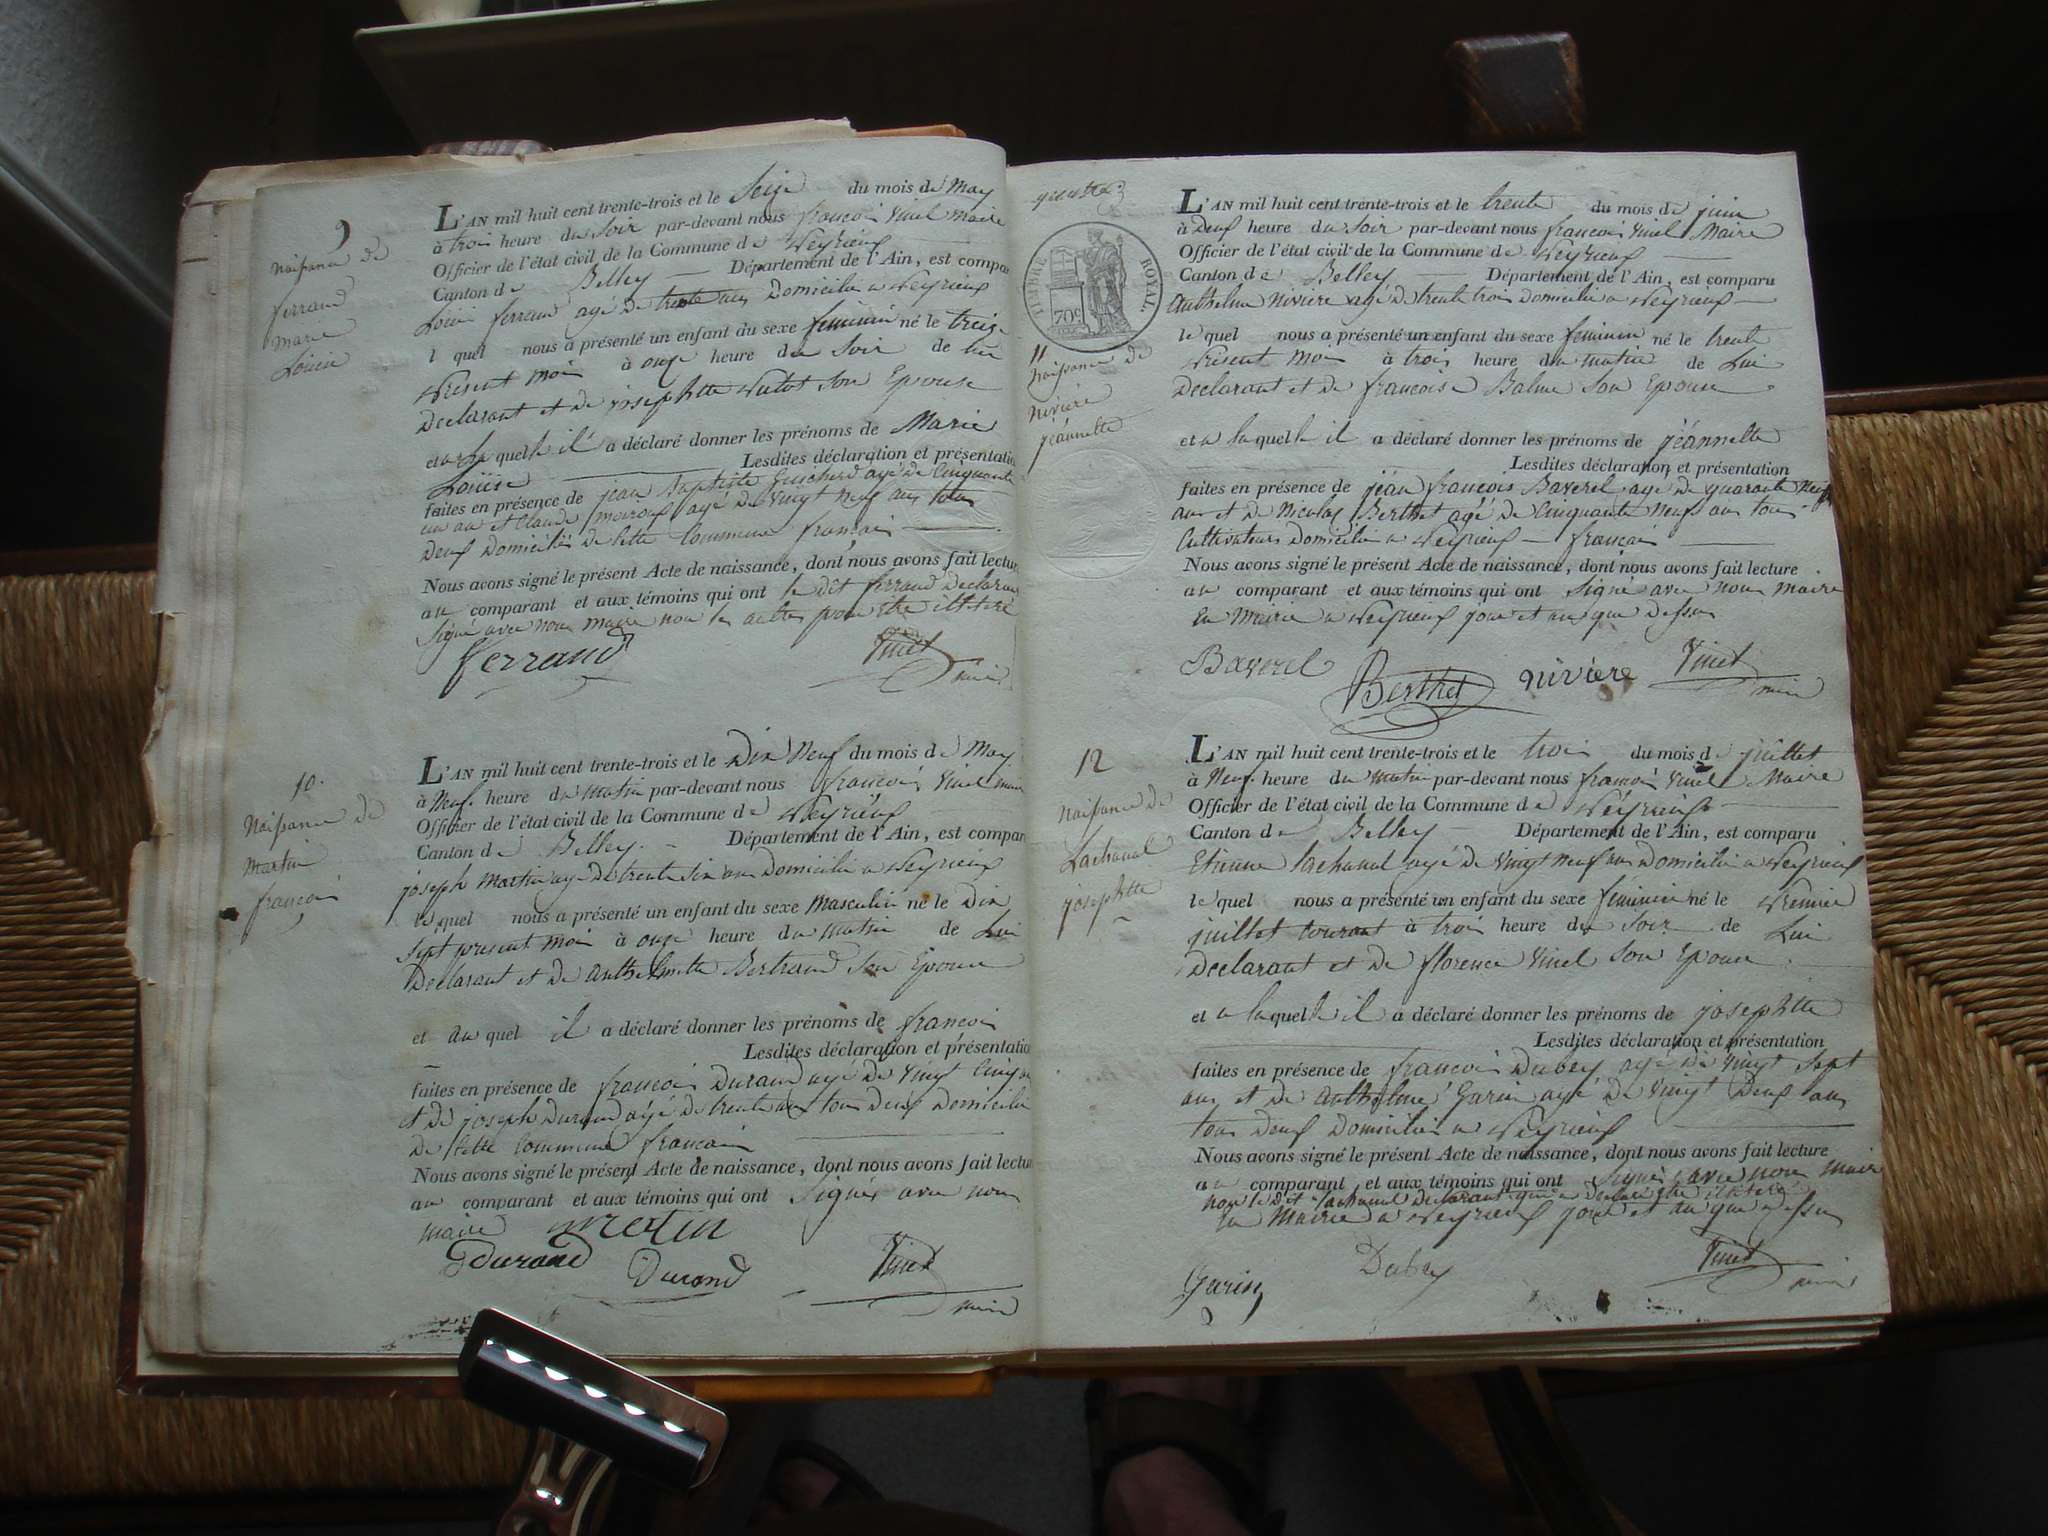 9
Naissance de
ferrand
marie
Louise
L'AN mil huit cent trente-trois et le Seize du mois de May
à trois heure du Soir par-devant nous francois Vinet Maire
Officier de l'état civil de la Commune de Peyrieux
Canton de Belley Département de l'Ain, est compa
Louis ferrand agé de trente ans Domicilié a Peyrieux
le quel nous a présenté un enfant du sexe feminin né le treize
present mois à onze heure du Soir de lui
Declarant et de josephtte son Epouse
et a la quelle il a déclaré donner les prénoms de Marie
Louise Lesdites déclaration et présentatio
faites en présence de jean baptiste Guicherd agé de Cinquante
un an et Claude agé de Vingt Neuf ans tous
Deux Domiciliés de Cette Commune francais
Nous avons signé le présent Acte de naissance, dont nous avons fait lectur
au comparant et aux témoins qui ont le dit ferrand Declaran
Signé avec nous maire non les autres pour etre illiteré
ferrand Vinet
maire
10.
Naissance de
Martin
francois
L'AN mil huit cent trente-trois et le Dix Neuf du mois de May
à Neuf heure du matin par-devant nous francois Vinet maire
Officier de l'état civil de la Commune de Peyrieux
Canton de Belley. Département de l'Ain, est compar
joseph Martin agé de trente Six ans Domicilié a Peyrieux
le quel nous a présenté un enfant du sexe Masculin né le Dix
Sept present mois à onze heure du matin de Lui
Declarant et de anthelmette Bertrand Son Epouse
et au quel il a déclaré donner les prénoms de francois
Lesdites déclaration et présentatio
faites en présence de francois Durand agé de Vingt Cinq an
et de joseph Durand agé de trente ans tous Deux Domicilié
de Cette Commune francais
Nous avons signé le présent Acte de naissance, dont nous avons fait lectur
au comparant et aux témoins qui ont Signés avec nous
maire mertin
durand Durand Vinet
maire
quatre
TIMBRE ROYAL
70c
11
Naissance de
Nivière
jeannette
L'AN mil huit cent trente-trois et le trente du mois de juin
à Deux heure du Soir par-devant nous francois Vinet Maire
Officier de l'état civil de la Commune de Peyrieux
Canton de Belley Département de l'Ain, est comparu
anthelme Niviere agé de trente trois Domicilié a Peyrieux
le quel nous a présenté un enfant du sexe feminin né le trente
present Mois à trois heure du matin de Lui
Declarant et de francoise Balme Son Epouse
et a la quelle il a déclaré donner les prénoms de jeannette
Lesdites déclaration et présentation
faites en présence de jean francois Baverel agé de quarante Neuf
ans et de Nicolas Berthet agé de Cinquante Neuf ans tous
Cultivateurs Domicilié a Peyrieux francais
Nous avons signé le présent Acte de naissance, dont nous avons fait lecture
au comparant et aux témoins qui ont Signé avec nous maire
en Mairie a Peyrieux jour et an que dessus
Baverel Berthet nivière Vinet
maire
12
Naissance de
Lachanal
josephtte
L'AN mil huit cent trente-trois et le trois du mois de juillet
à Neuf heure du matin par-devant nous francois Vinet Maire
Officier de l'état civil de la Commune de Peyrieux
Canton de Belley Département de l'Ain, est comparu
Etienne lachanal agé de Vingt Neuf ans Domicilié a Peyrieux
le quel nous a présenté un enfant du sexe féminin né le Premier
juillet courant à trois heure du Soir de Lui
Declarant et de florence Vinet Son Epouse
et a la quelle il a déclaré donner les prénoms de josephtte
Lesdites déclaration et présentation
faites en présence de francois Dubey agé de Vingt Sept
ans et de anthelme Garin agé de Vingt Deux ans
tous Deux Domiciliés a Peyrieux
Nous avons signé le présent Acte de naissance, dont nous avons fait lecture
au comparant et aux témoins qui ont Signés avec nous maire
non le dit lachanal declarant qui a Declaré etre illiteré
en Mairie a Peyrieux jour et an que dessus
Garin Dubey Vinet
maire